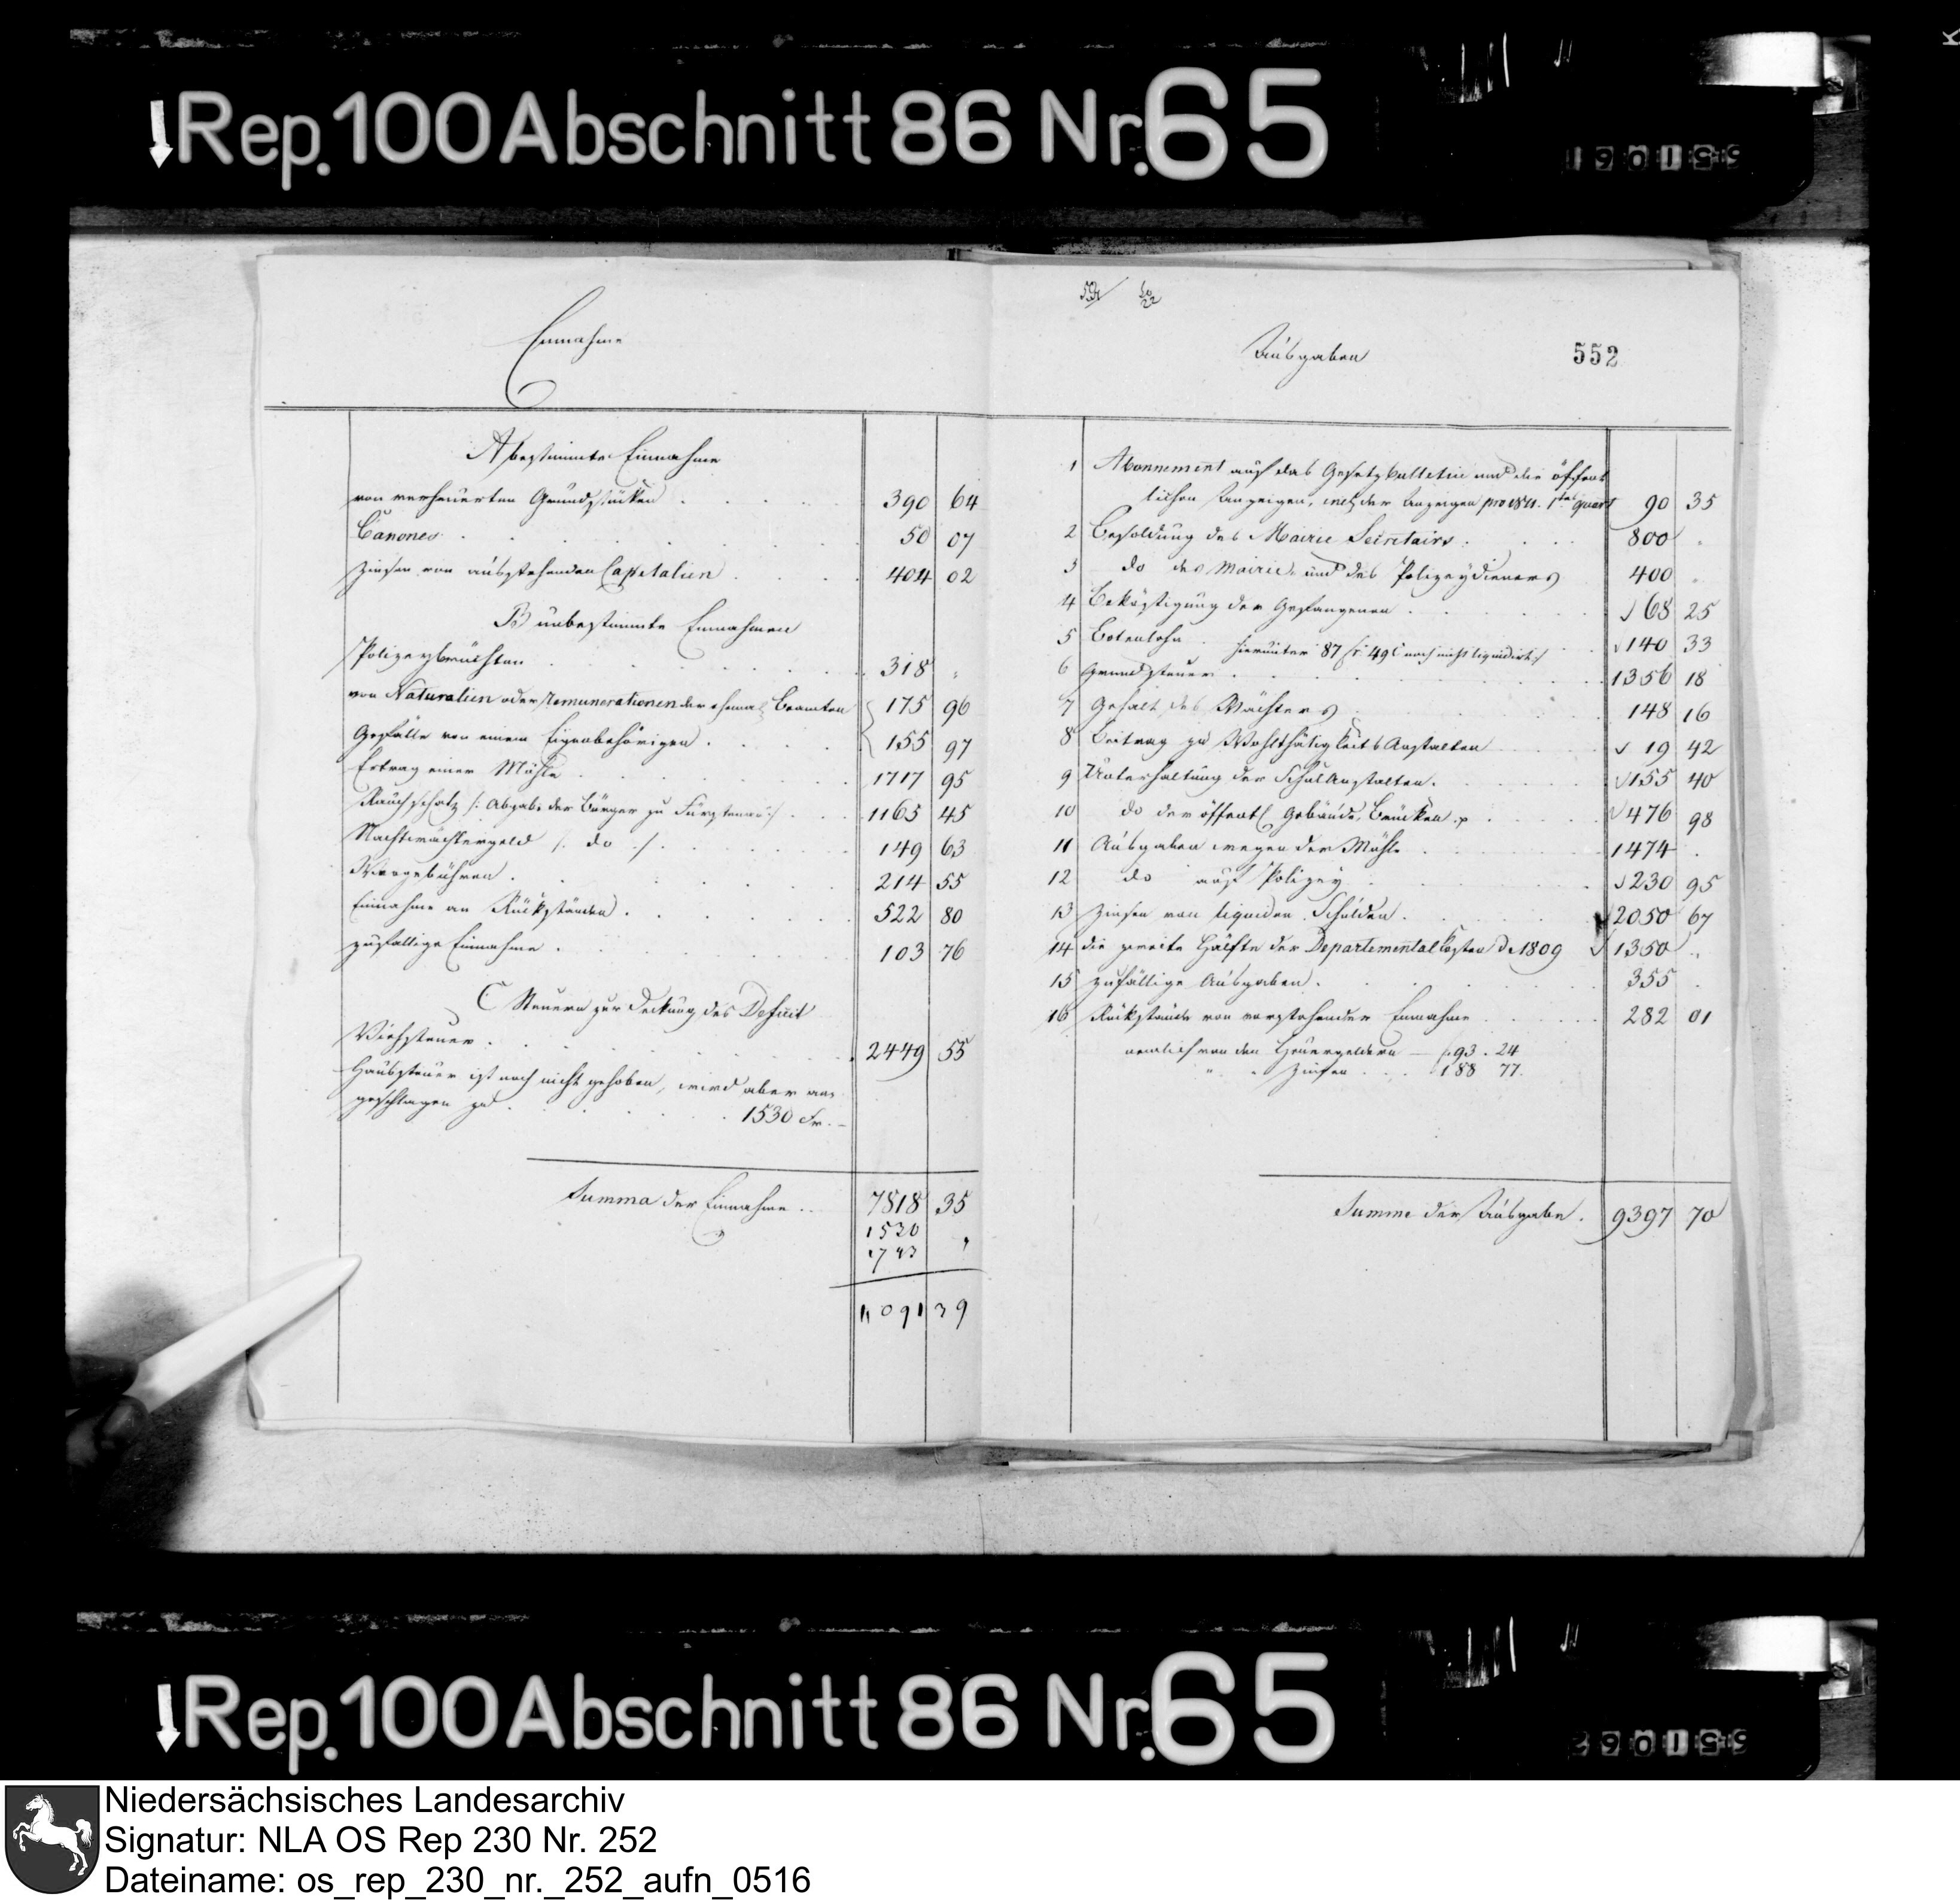 Rep. 100 Abschnitt 86 Nr. 65
Einnahme
A bestimmte Einnahme
von verheuerten Grundstücken . 390 64
Canones . 50 07
Zinsen von ausstehenden Capitalien . 404 02
B unbestimmte Einnahmen
Polizeybrüchten . 318 "
von Naturalien oder remunerationen der ehemal. Beamten 175 96
Gefälle von einem Eigenbehörigen . 155 97
Ertrag einer Mühle . 1717 95
Rauchschatz /: Abgabe der Bürger zu Fürstenau :/ . 1165 45
Nachtwächtergeld /: do :/ . 149 63
Wegegebühren . 214 55
Einnahme an Rückständen . 522 80
zufällige Einnahme . 103 76
C Steuern zur Deckung des Deficit
Viehsteuer . 2449 55
Haussteuer ist noch nicht gehoben, wird aber an-
geschlagen zu . 1530 Fr. –
Summa der Einnahme .. 7818 35
1530
1743 "
11091 39
552
Ausgaben
1 Abonnement auf das Gesetzbulletin und die öffent
lichen Anzeigen, incl. der Anzeigen pro 1811. 1stes quart 90 35
2 Besoldung des Mairie Secretairs . 800 .
3 do des Mairie und des Polizeydieners 400 .
4 Beköstigung der Gefangenen . 68 25
5 Botenlohn . hierunter 87 fr 49 C noch nicht liquidirt :/ 140 33
6 Grundsteuer . 1356 18
7 Gehalt des Wächters . 148 16
8 Beitrag zu Wohlthätigkeits Anstalten 19 42
9 Unterhaltung der Schul Anstalten . 155 40
10 do der öffentl. Gebäude, Brücken p . 476 98
11 Ausgaben wegen der Mühle . 1474 .
12 do auf Polizey . 230 95
13 Zinsen von liquiden Schulden . 2050 67
14 die zweite Hälfte der Departemental Kosten de 1809 1350 "
15 zufällige Ausgaben . 355 .
16 Rückstände von vorstehender Einnahme . 282 01
nemlich von den Heuergeldern — 93 . 24
" " Zinsen . . . 188 77.
Summe der Ausgabe . 9397 70
Rep. 100 Abschnitt 86 Nr. 65
Niedersächsisches Landesarchiv
Signatur: NLA OS Rep 230 Nr. 252
Dateiname: os_rep_230_nr._252_aufn_0516